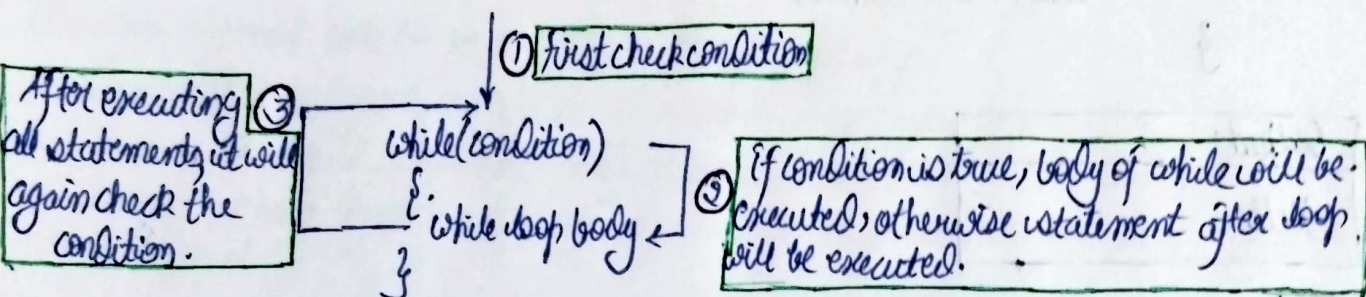 ① First check condition
After executing ③
all statements, it will
again check the
condition.
while(condition)
{
while loop body
}
② if condition is true, body of while will be
executed, otherwise statement after loop
will be executed.